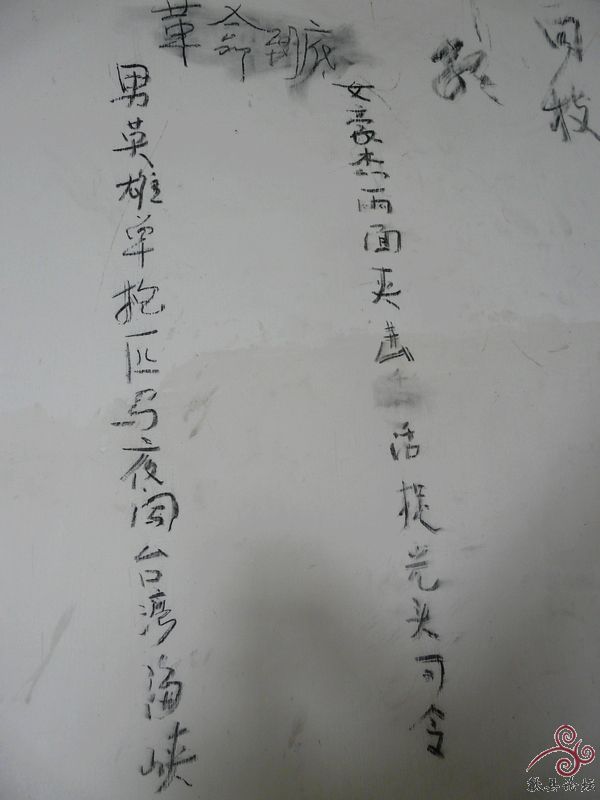 革命到底
男英雄单抱匹马夜闯台湾海峡
女豪杰两面夹击活捉光头司令